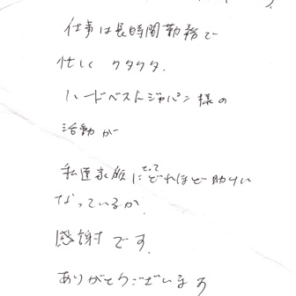 仕事は長時間勤務で
忙しく クタクタ.
ハードベストジャパン様の
活動が
私達家族にとってどれほど助けに
なっているか.
感謝です.
ありがとうございます